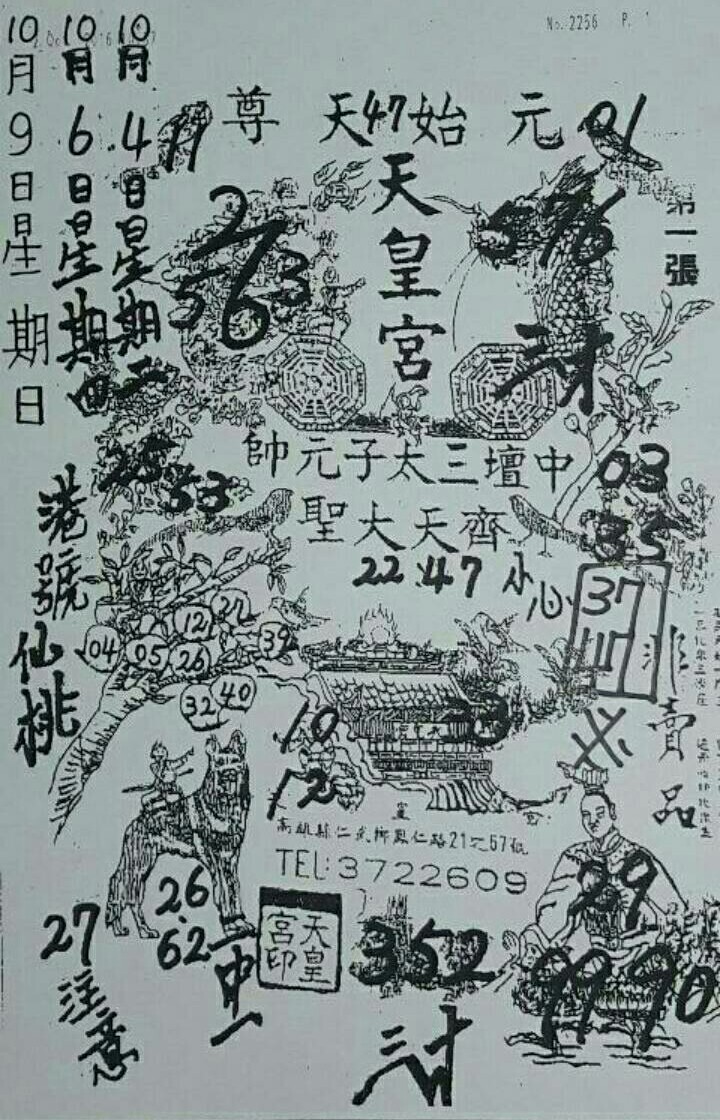 No. 2256 P. 1
10月4日星期二
10月6日星期四
10月9日星期日
元始天尊
01
47
11
天皇宮
第一張
576
2
5763
三才
中壇三太子元帥
03
25
53
齊天大聖
35
22.47
小心
37
40
港號仙桃
12
27
04
05
26
39
32
40
非賣品
10
33
12
高雄縣仁武鄉鳳仁路21之57號
TEL:3722609
29
26
62
27注意
二中一
天皇宮印
352
99
90